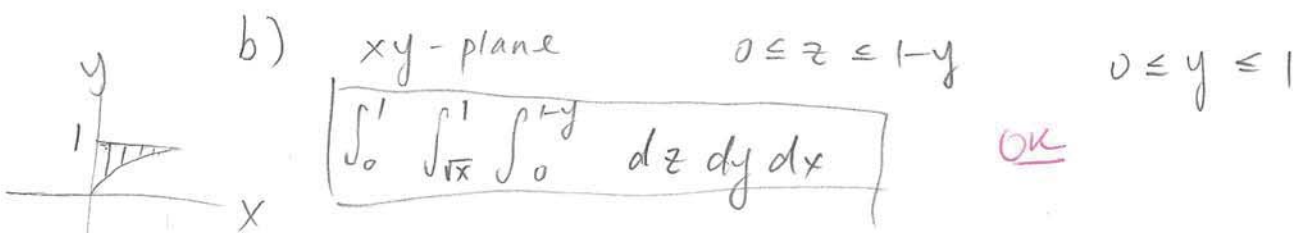 b) xy-plane 0 ≤ z ≤ 1-y 0 ≤ y ≤ 1
y
1
∫₀¹ ∫_{√x}^{1} ∫₀^{1-y} dz dy dx OK
x